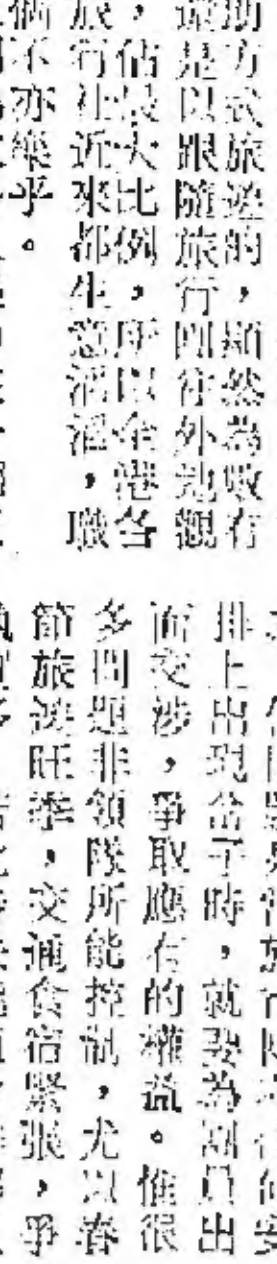 助方式旅遊的,顯然為吸有
還是以跟隨旅行團往外地觀
,佔最大比例,所以全港各
旅行社近來都生意滔滔,職
個不亦樂乎。
排上出現岔子時,就要為團員出
面交涉,爭取應有的權益。惟很
多問題非領隊所能控制,尤以春
節旅遊旺季,交通食宿緊張,爭